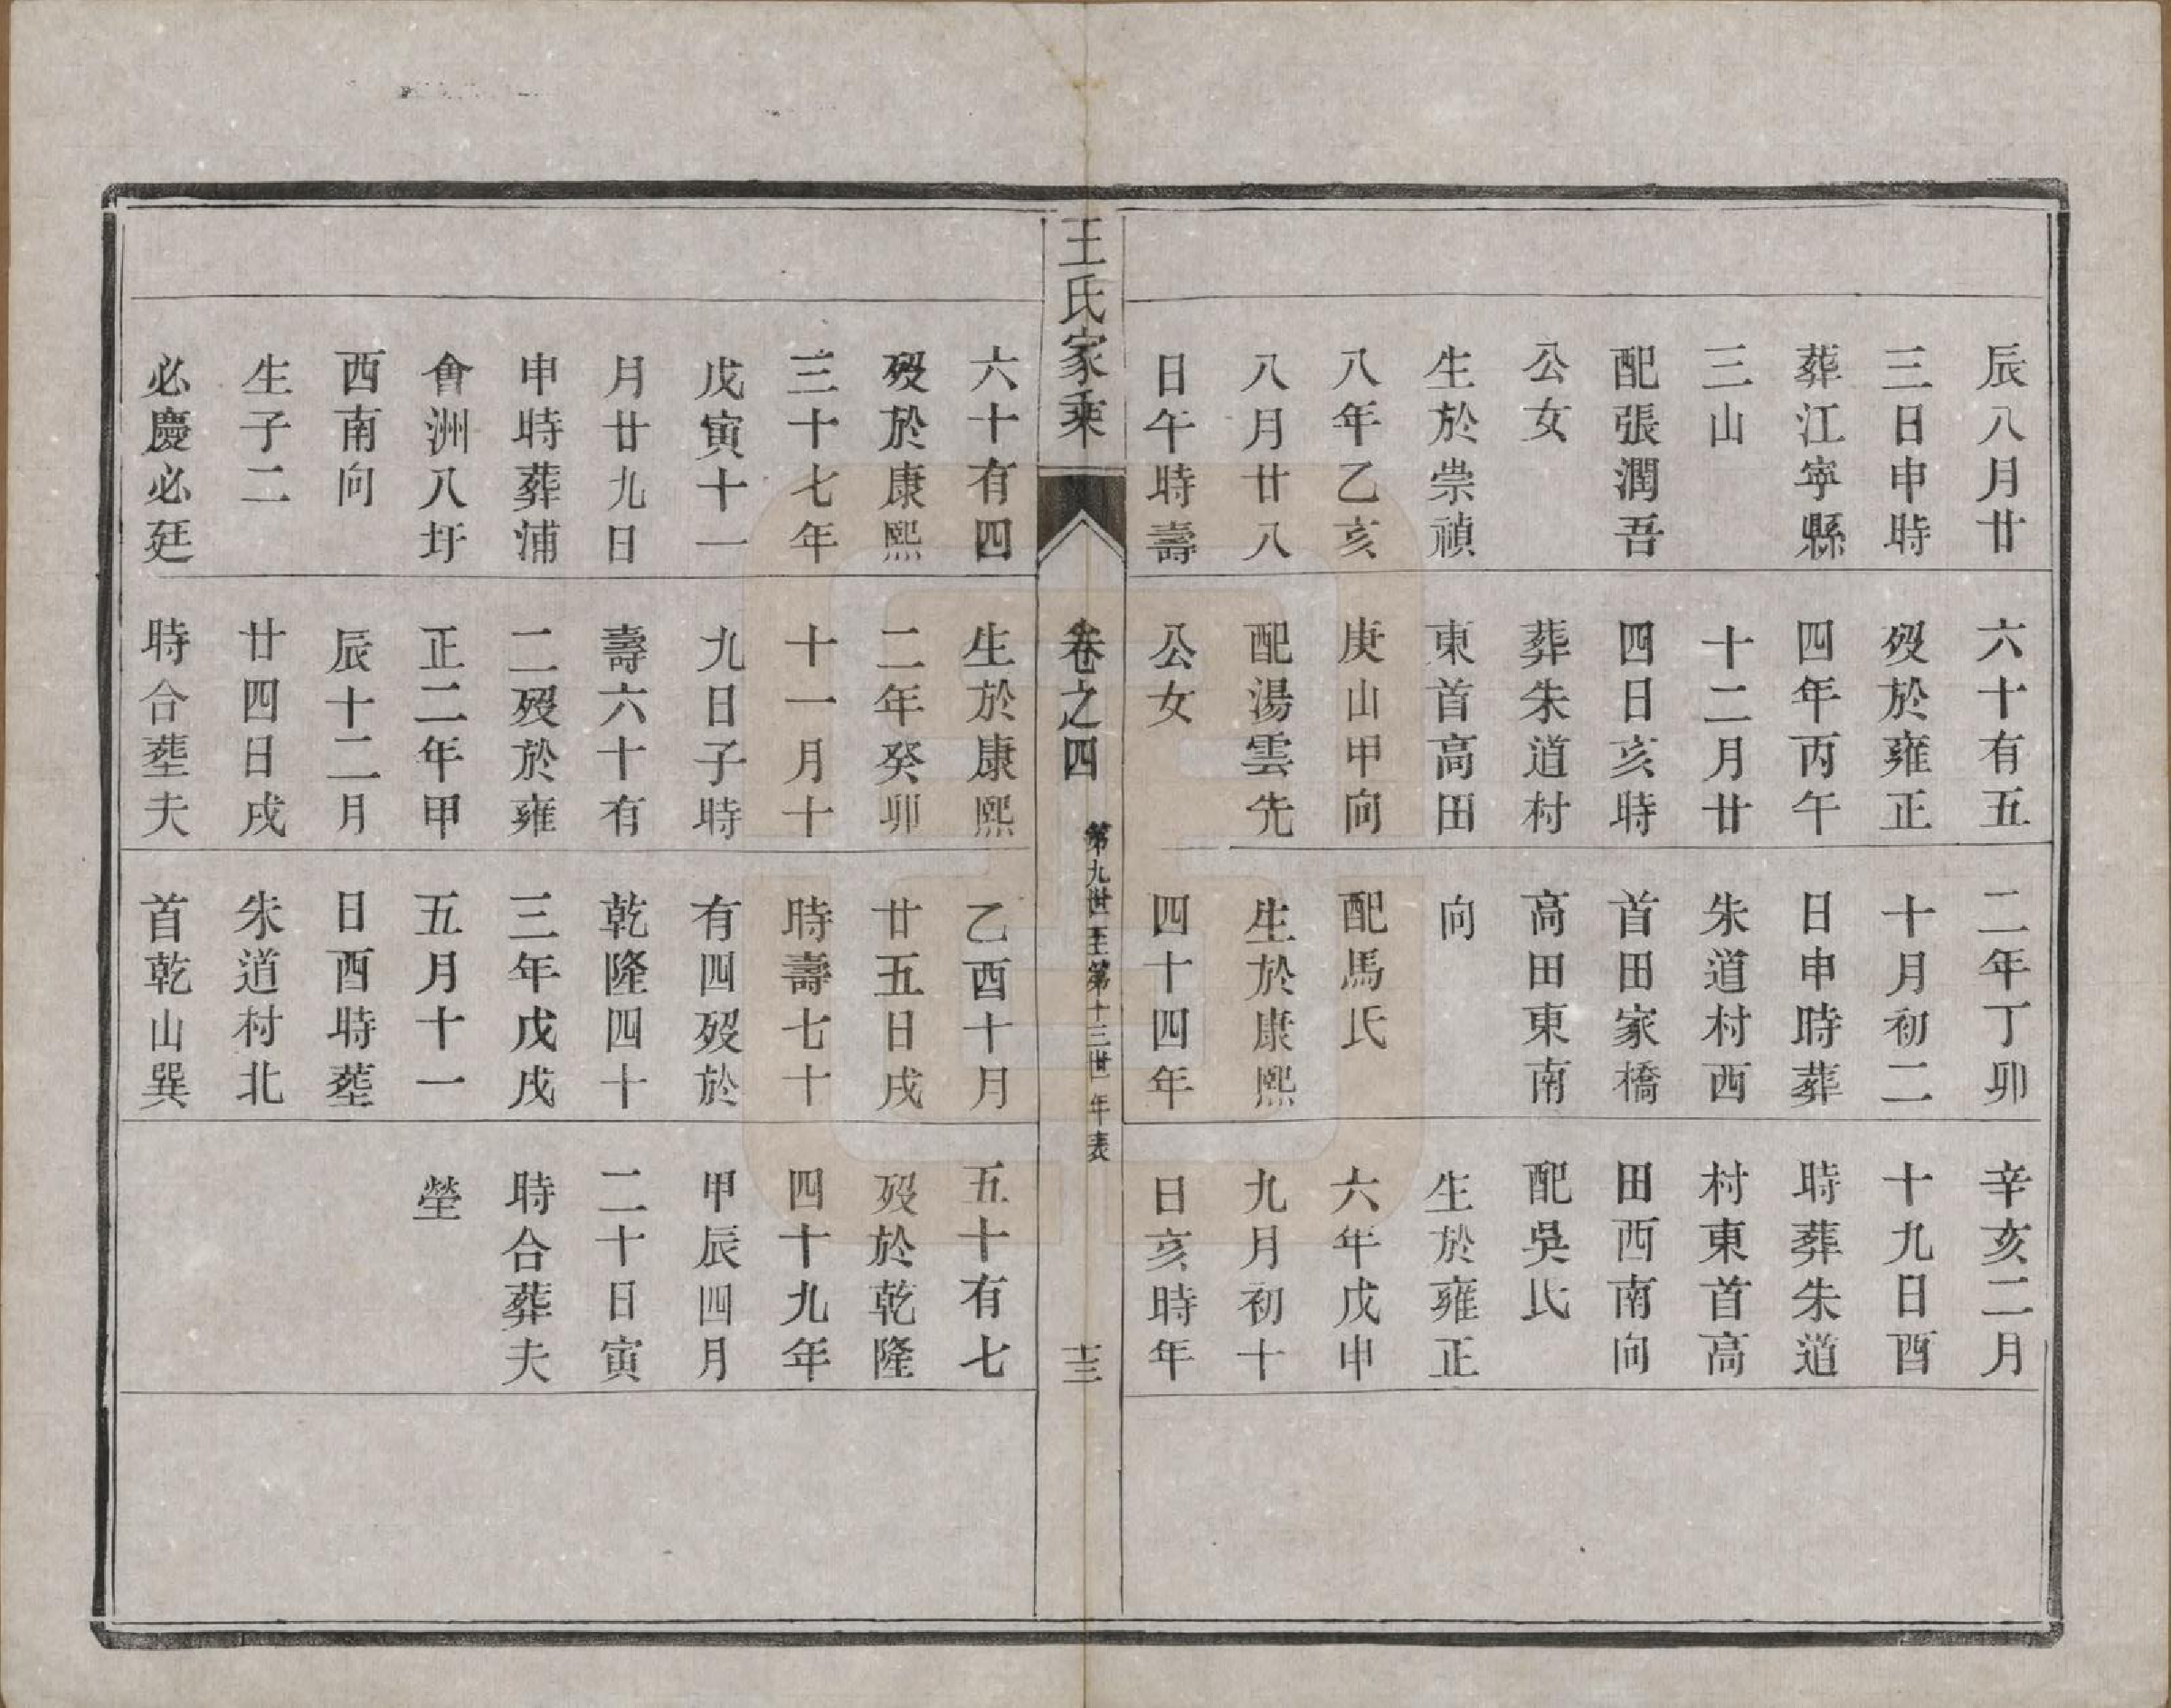 辰八月廿
三日申時
葬江寧縣
三山
配張潤吾
公女
生於崇禎
八年乙亥
八月廿八
日午時壽
六十有四
歿於康熙
三十七年
戊寅十一
月廿九日
申時葬浦
會洲八圩
西南向
生子二
必慶必廷
六十有五
歿於雍正
四年丙午
十二月廿
四日亥時
葬朱道村
東首高田
庚山甲向
配湯雲先
公女
生於康熙
二年癸卯
十一月十
九日子時
壽六十有
二歿於雍
正二年甲
辰十二月
廿四日戌
時合塟夫
二年丁卯
十月初二
日申時葬
朱道村西
首田家橋
高田東南
向
配馬氏
生於康熙
四十四年
乙酉十月
廿五日戌
時壽七十
有四歿於
乾隆四十
三年戊戌
五月十一
日酉時塟
朱道村北
首乾山巽
辛亥二月
十九日酉
時葬朱道
村東首高
田西南向
配吳氏
生於雍正
六年戊申
九月初十
日亥時年
五十有七
歿於乾隆
四十九年
甲辰四月
二十日寅
時合葬夫
塋
王氏家乘
卷之四
第九世至第十三世年表
十三